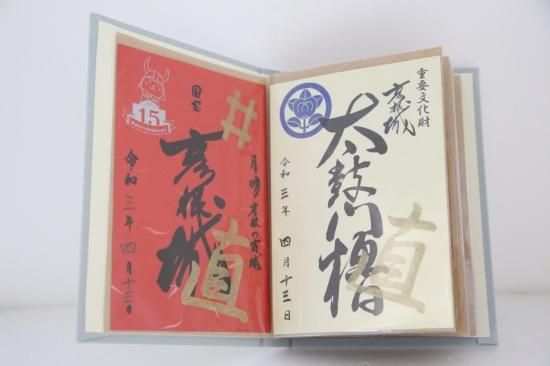 重要文化財
彦根城
直
太鼓門櫓
令和三年 四月十三日
月明 彦根の古城
井
直
彦根城
国宝
15
ANNIVERSARY
令和三年 四月十三日